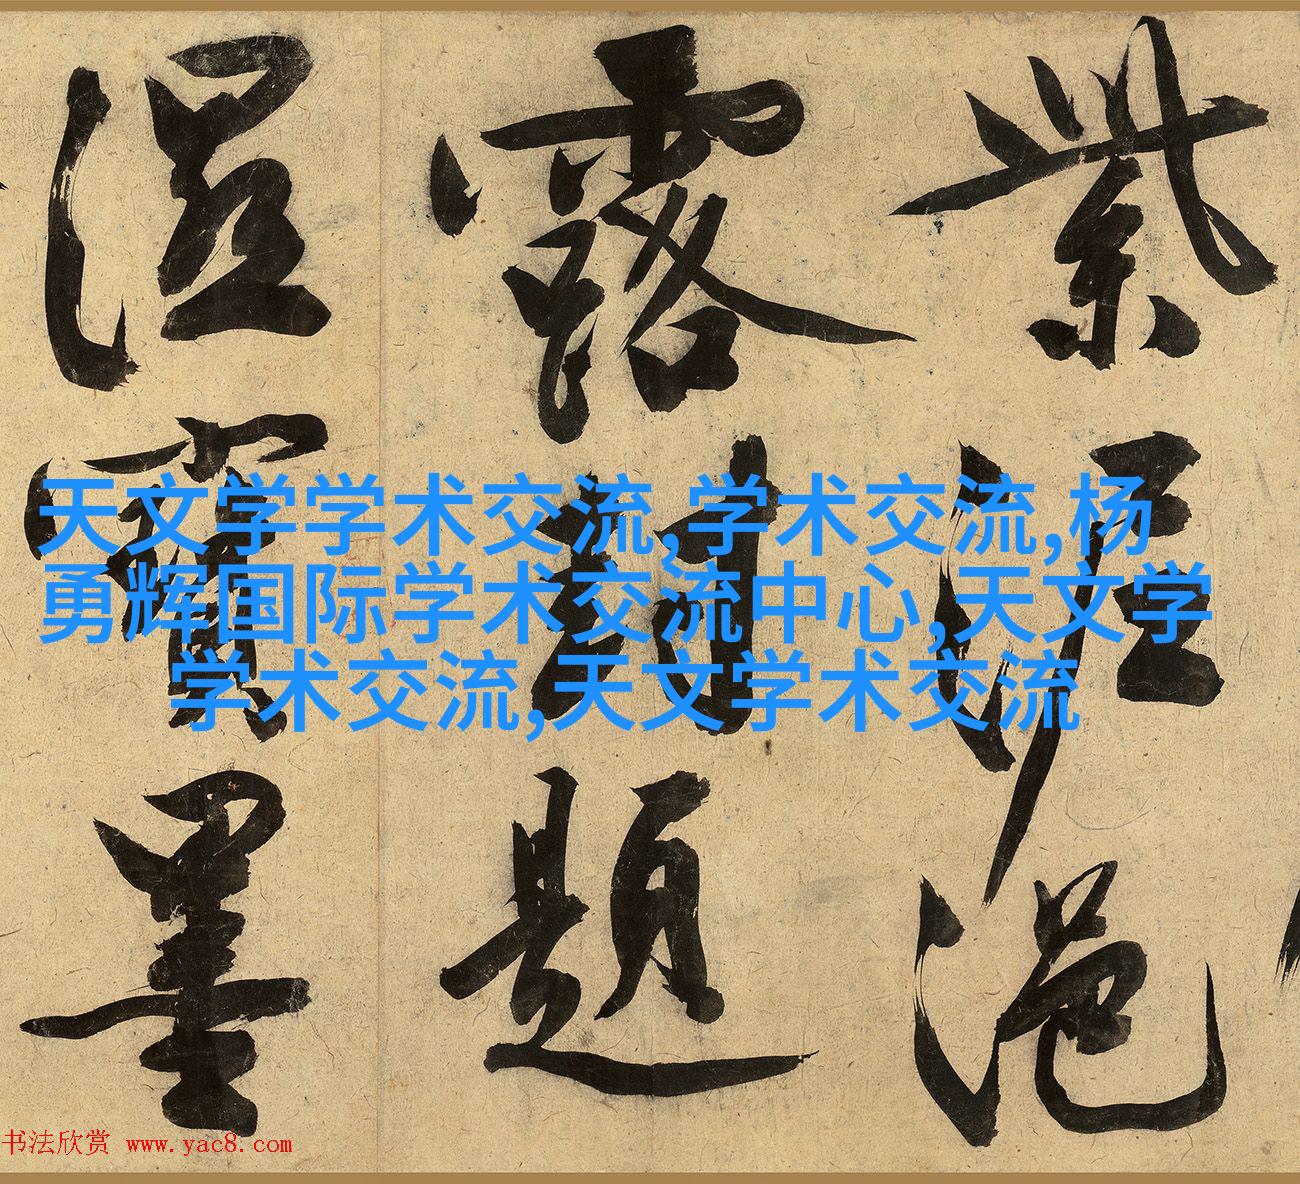 紫泥浥
露封題
湿寶墨
天文学学术交流,学术交流,杨
勇辉国际学术交流中心,天文学
学术交流,天文学术交流
书法欣赏 www.yac8.com